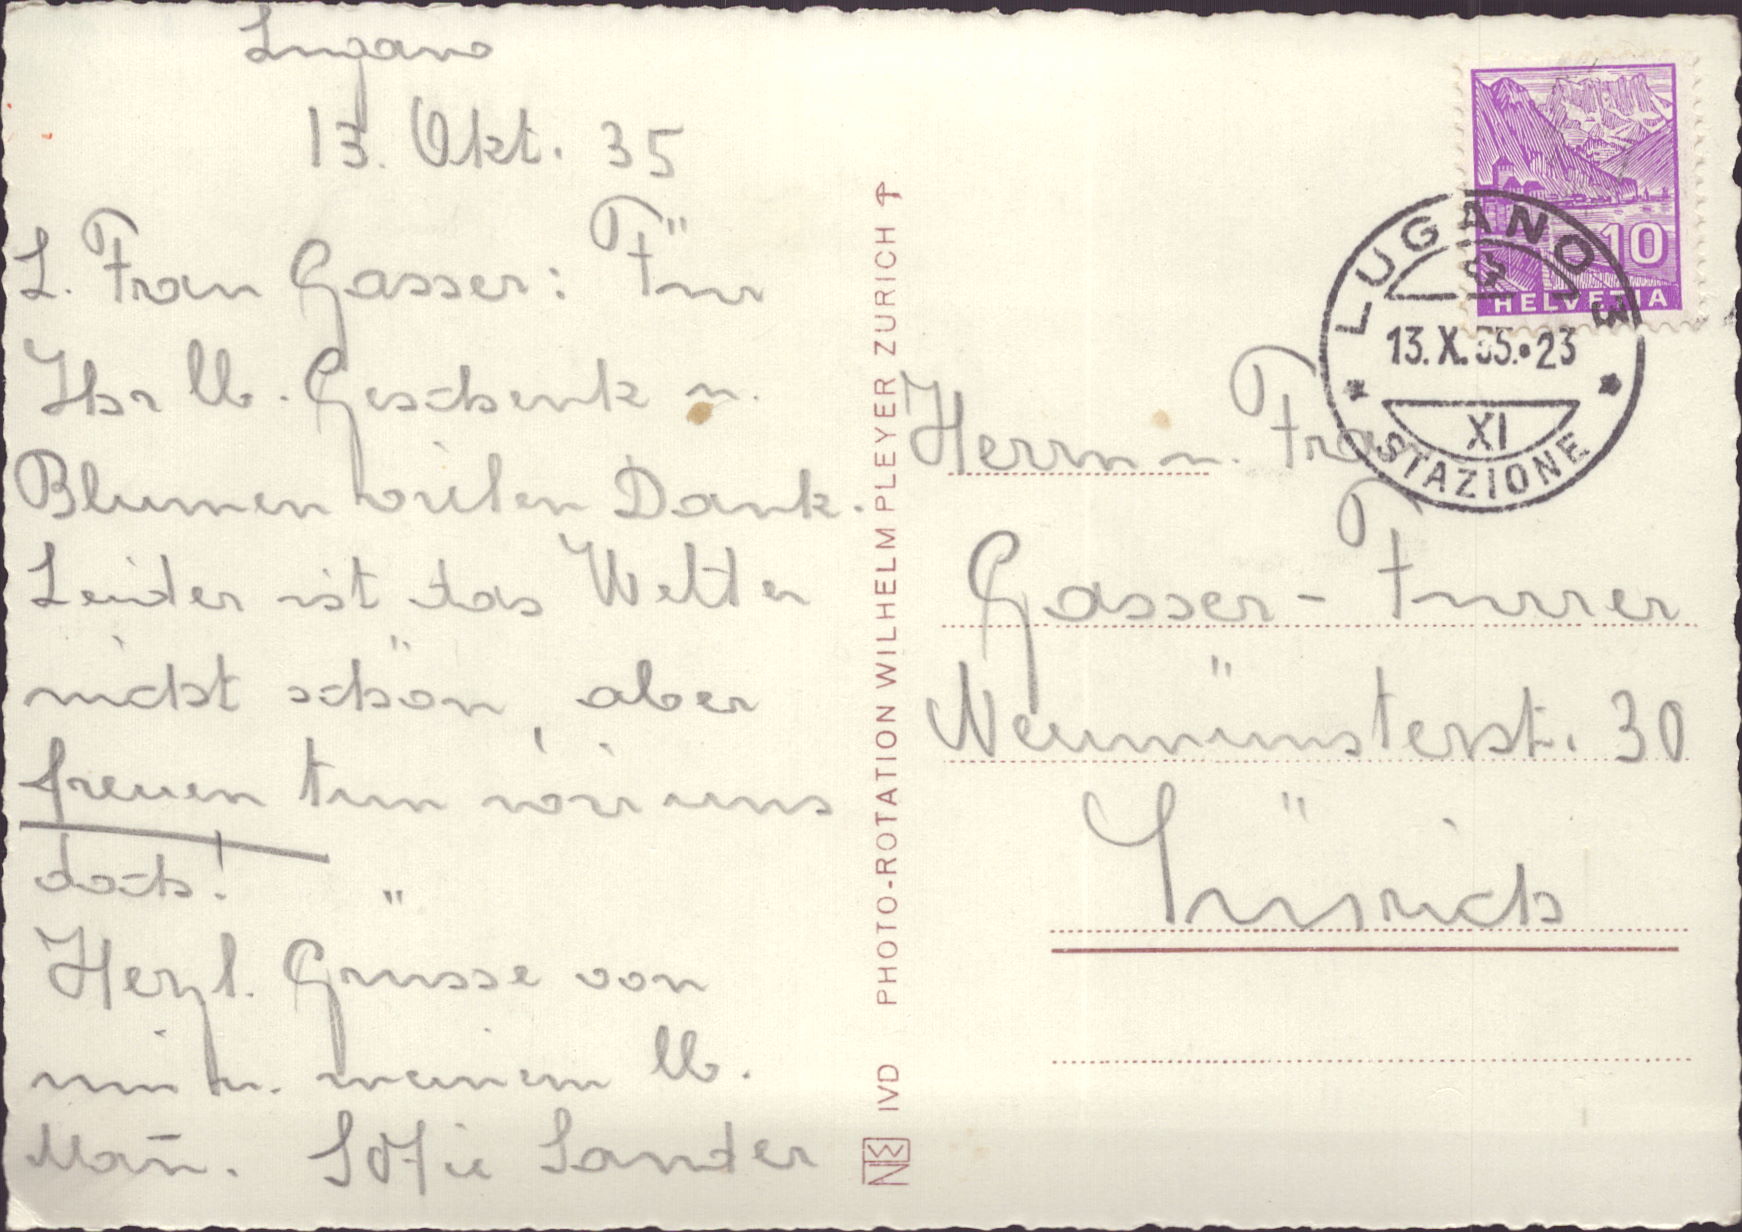 Lugano
13. Okt. 35
L. Frau Gasser: Für
Ihr lb. Geschenk u.
Blumen vielen Dank.
Leider ist das Wetter
nicht schön, aber
freuen tun wir uns
doch!
Herzl. Grüsse von
mir u. meinem lb.
Mañ. Sofie Sander
PHOTO-ROTATION WILHELM PLEYER ZURICH
IVD
HELVETIA
10
LUGANO 3
13.X.35.•23
XI
STAZIONE
Herrn u. Frau
Gasser-Furrer
Neumünsterst. 30
Zürich